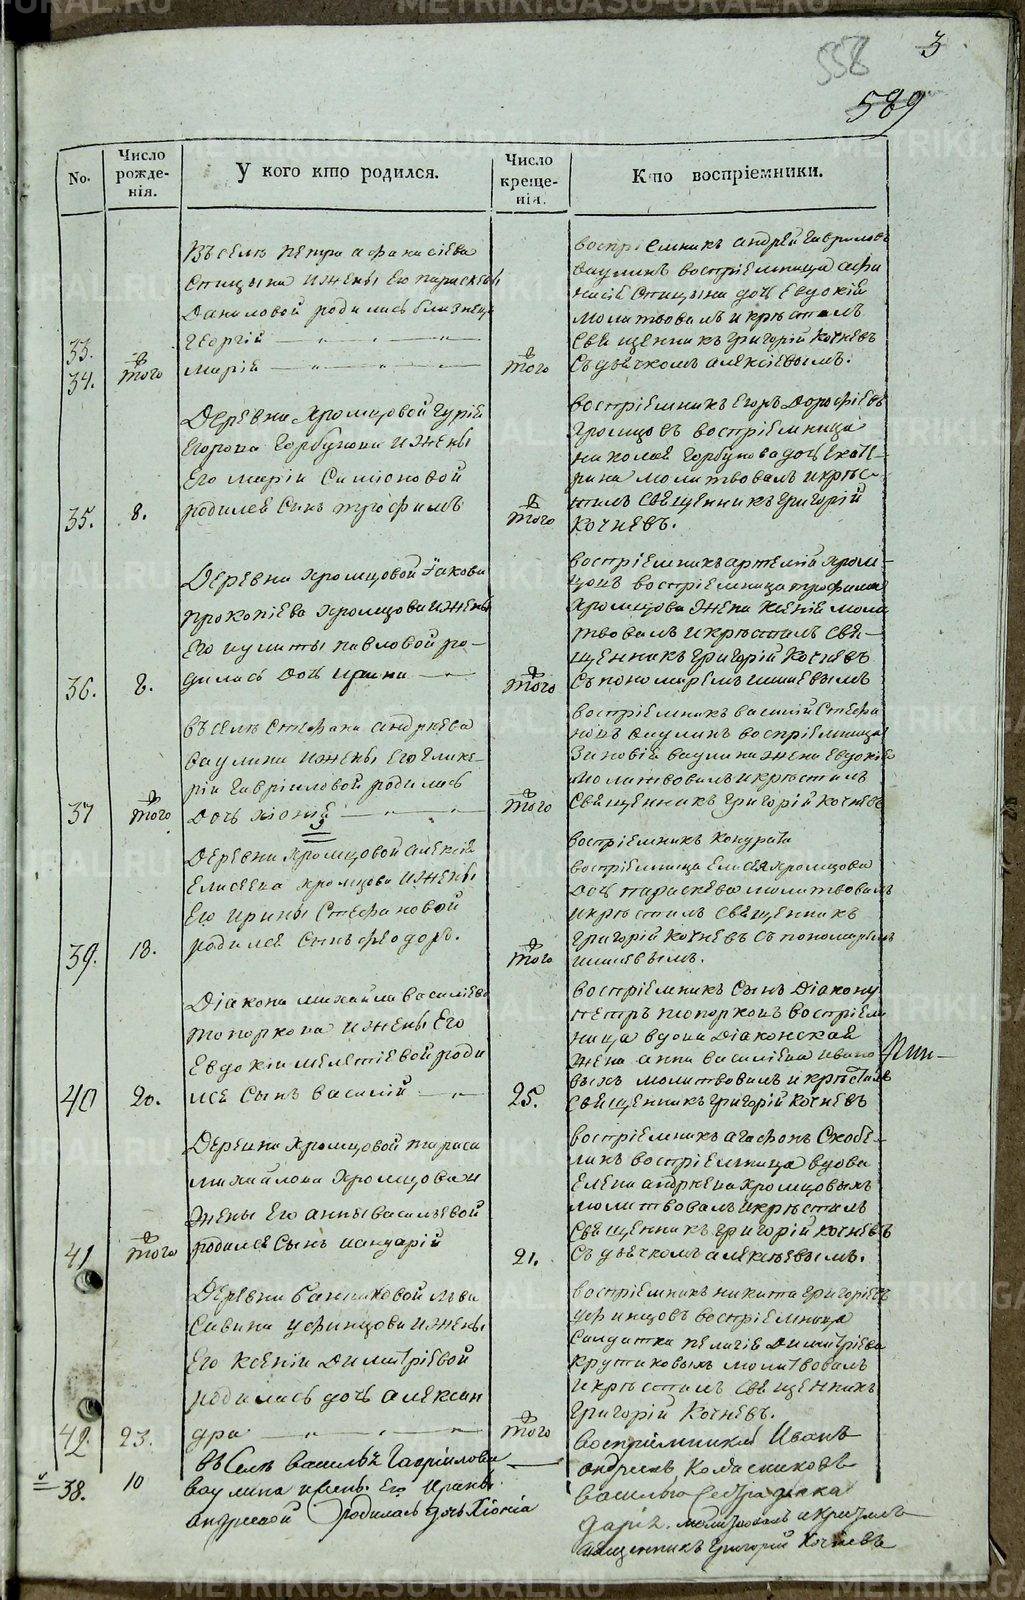 558
3
589
No.
Число рожде-нія.
У кого кто родился.
Число креще-нія.
Кто воспріемники.
33.
34.
въ
того
Въ селѣ Петра Афанасіева
Спицына и жены его Параскевы
Даниловой родились близнецы
Георгій
Марія
въ
того
воспріемникъ Андрей Гавриловъ
Ваулинъ воспріемница Афа
насія Спицына дочь Евдокія
молитвовалъ и крестилъ
Священникъ Григорій Кочневъ
съ дьячкомъ Алексіевымъ.
35.
8.
Деревни Хромцовой Гурія
Егорова Горбунова и жены
его Маріи Симіоновой
родился сынъ Трофимъ
въ
того
воспріемникъ Егоръ Дорофіевъ
Хромцовъ воспріемница
Николая Горбунова дочь Екате
рина молитвовалъ и крес-
тилъ Священникъ Григорій
Кочневъ.
36.
8.
Деревни Хромцовой Іакова
Прокопіева Хромцова и жены
его Іулиты Павловой ро-
дилась дочь Ирина
въ
того
воспріемникъ Артемій Хром-
цовъ воспріемница Трофима
Хромцова жена Ксенія моли
твовалъ и крестилъ Свя-
щенникъ Григорій Кочневъ
съ пономаремъ
37
въ
того
въ селѣ Стефана Андреева
Ваулина и жены его Глике-
ріи Гавріиловой родилась
дочь Хіонія
въ
того
воспріемникъ Василій Стефа
новъ Ваулинъ воспріемница
Зиновія Ваулина жена Евдокія
молитвовалъ и крестилъ
Священникъ Григорій Кочневъ
39.
18.
Деревни Хромцовой Алексія
Елисеева Хромцова и жены
его Ирины Стефановой
родился сынъ Феодоръ.
въ
того
воспріемникъ Кондратъ
воспріемница Елисея Хромцова
дочь Параскева молитвовалъ
и крестилъ Священникъ
Григорій Кочневъ съ пономаремъ
40
20.
Діакона Михаила Василіева
Топоркова и жены его
Евдокіи Мелетіевой роди
лся сынъ Василій
25.
воспріемникъ сынъ Діакону
Петръ Топорковъ воспріем
ница вдова Діаконская
жена Анна Василіева Ивано
выхъ молитвовалъ и крестилъ
Священникъ Григорій Кочневъ
41
въ
того
Деревни Хромцовой Тараса
Михайлова Хромцова и
жены его Анны Васильевой
родился сынъ Іануарій
21.
воспріемникъ Агафонъ Скобе-
линъ воспріемница вдова
Елена Андреева Хромцовыхъ
молитвовалъ и крестилъ
Священникъ Григорій Кочневъ
съ дьячкомъ Алексѣевымъ.
42.
23.
Деревни Банниковой Льва
Савина Уфинцова и жены
его Ксеніи Димитріевой
родилась дочь Алексан
дра
въ
того
воспріемникъ Никита Григоріевъ
Уфинцовъ воспріемница
Салдатка Пелагія Димитріева
Крутиковыхъ молитвовалъ
и крестилъ Священникъ
Григорій Кочневъ.
38.
10
въ селѣ Василья Гавріилова
Ваулина и жены его Ирины
Андреевой родилась дочь Хіонія
воспріемники Иванъ
Андреевъ Колясниковъ
Василья сестра
Дарія. молитвовалъ и крестилъ
священникъ Григорій Кочневъ
METRIKI.GASO-URAL.RU